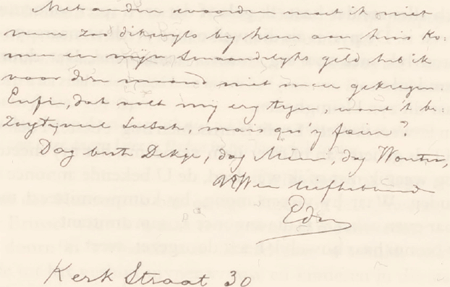 Met andere woorden moet ik niet
meer zoo dikwijls by hem aan huis ko-
men en mijn 5maandelyks geld heb ik
voor die maand niet meer gekregen.
Enfin, dat valt my erg tegen, want 't be-
zorgt veel soesah, mais qu'y faire?
Dag beste Dekje, dag Mien, dag Wouter,
liefhebbend
Edu
Kerk Straat 30